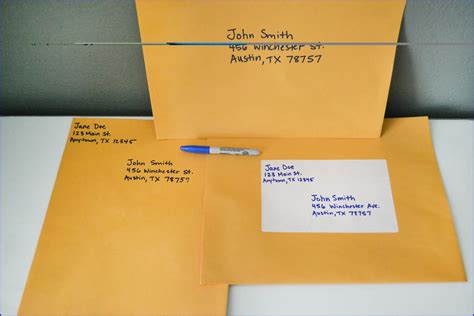 John Smith
456 Winchester St.
Austin, TX 78757
Jane Doe
123 Main St.
Anytown, TX 12345
John Smith
456 Winchester St.
Austin, TX 78757
Jane Doe
123 Main St.
Anytown, TX 12345
John Smith
456 Winchester Ave.
Austin, TX 78757